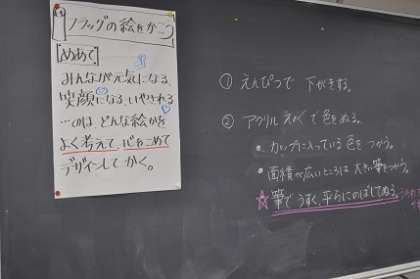 フラッグの絵をかこう
[めあて]
みんなが元気になる、
笑顔になる、いやされる
…のは どんな絵かを
よく考えて、心をこめて
デザインしてかく。
① えんぴつで 下がきする。
② アクリルえのぐで色をぬる。
• カップに入っている色をつかう。
• 面積が広いところは大きい筆をつかう。
☆筆でうすく、平らにのばしてぬる。